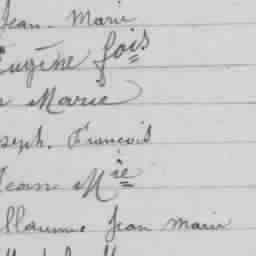 Jean Marie
Eugène fois
Marie
seph. François
Jean Mie
illaume Jean Marie